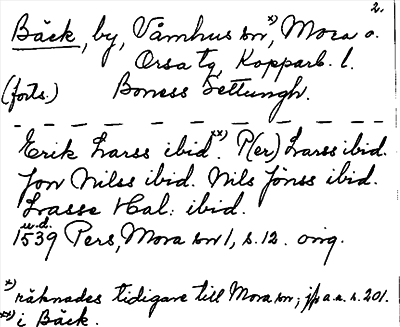 2.
Bäck, by, Våmhus sn x), Mora o.
Orsa tg, Kopparb. l.
(forts.) Boness Settungh.
Erik Larss ibid. xx) P(er) Larss ibid.
Jon Nilss ibid. Nils Jönss ibid.
Lasse Hal: ibid.
u.d.
1539 Pers, Mora sn 1, s. 12. orig.
x) räknades tidigare till Mora sn; jfr a.a. s. 201.
xx) i Bäck.